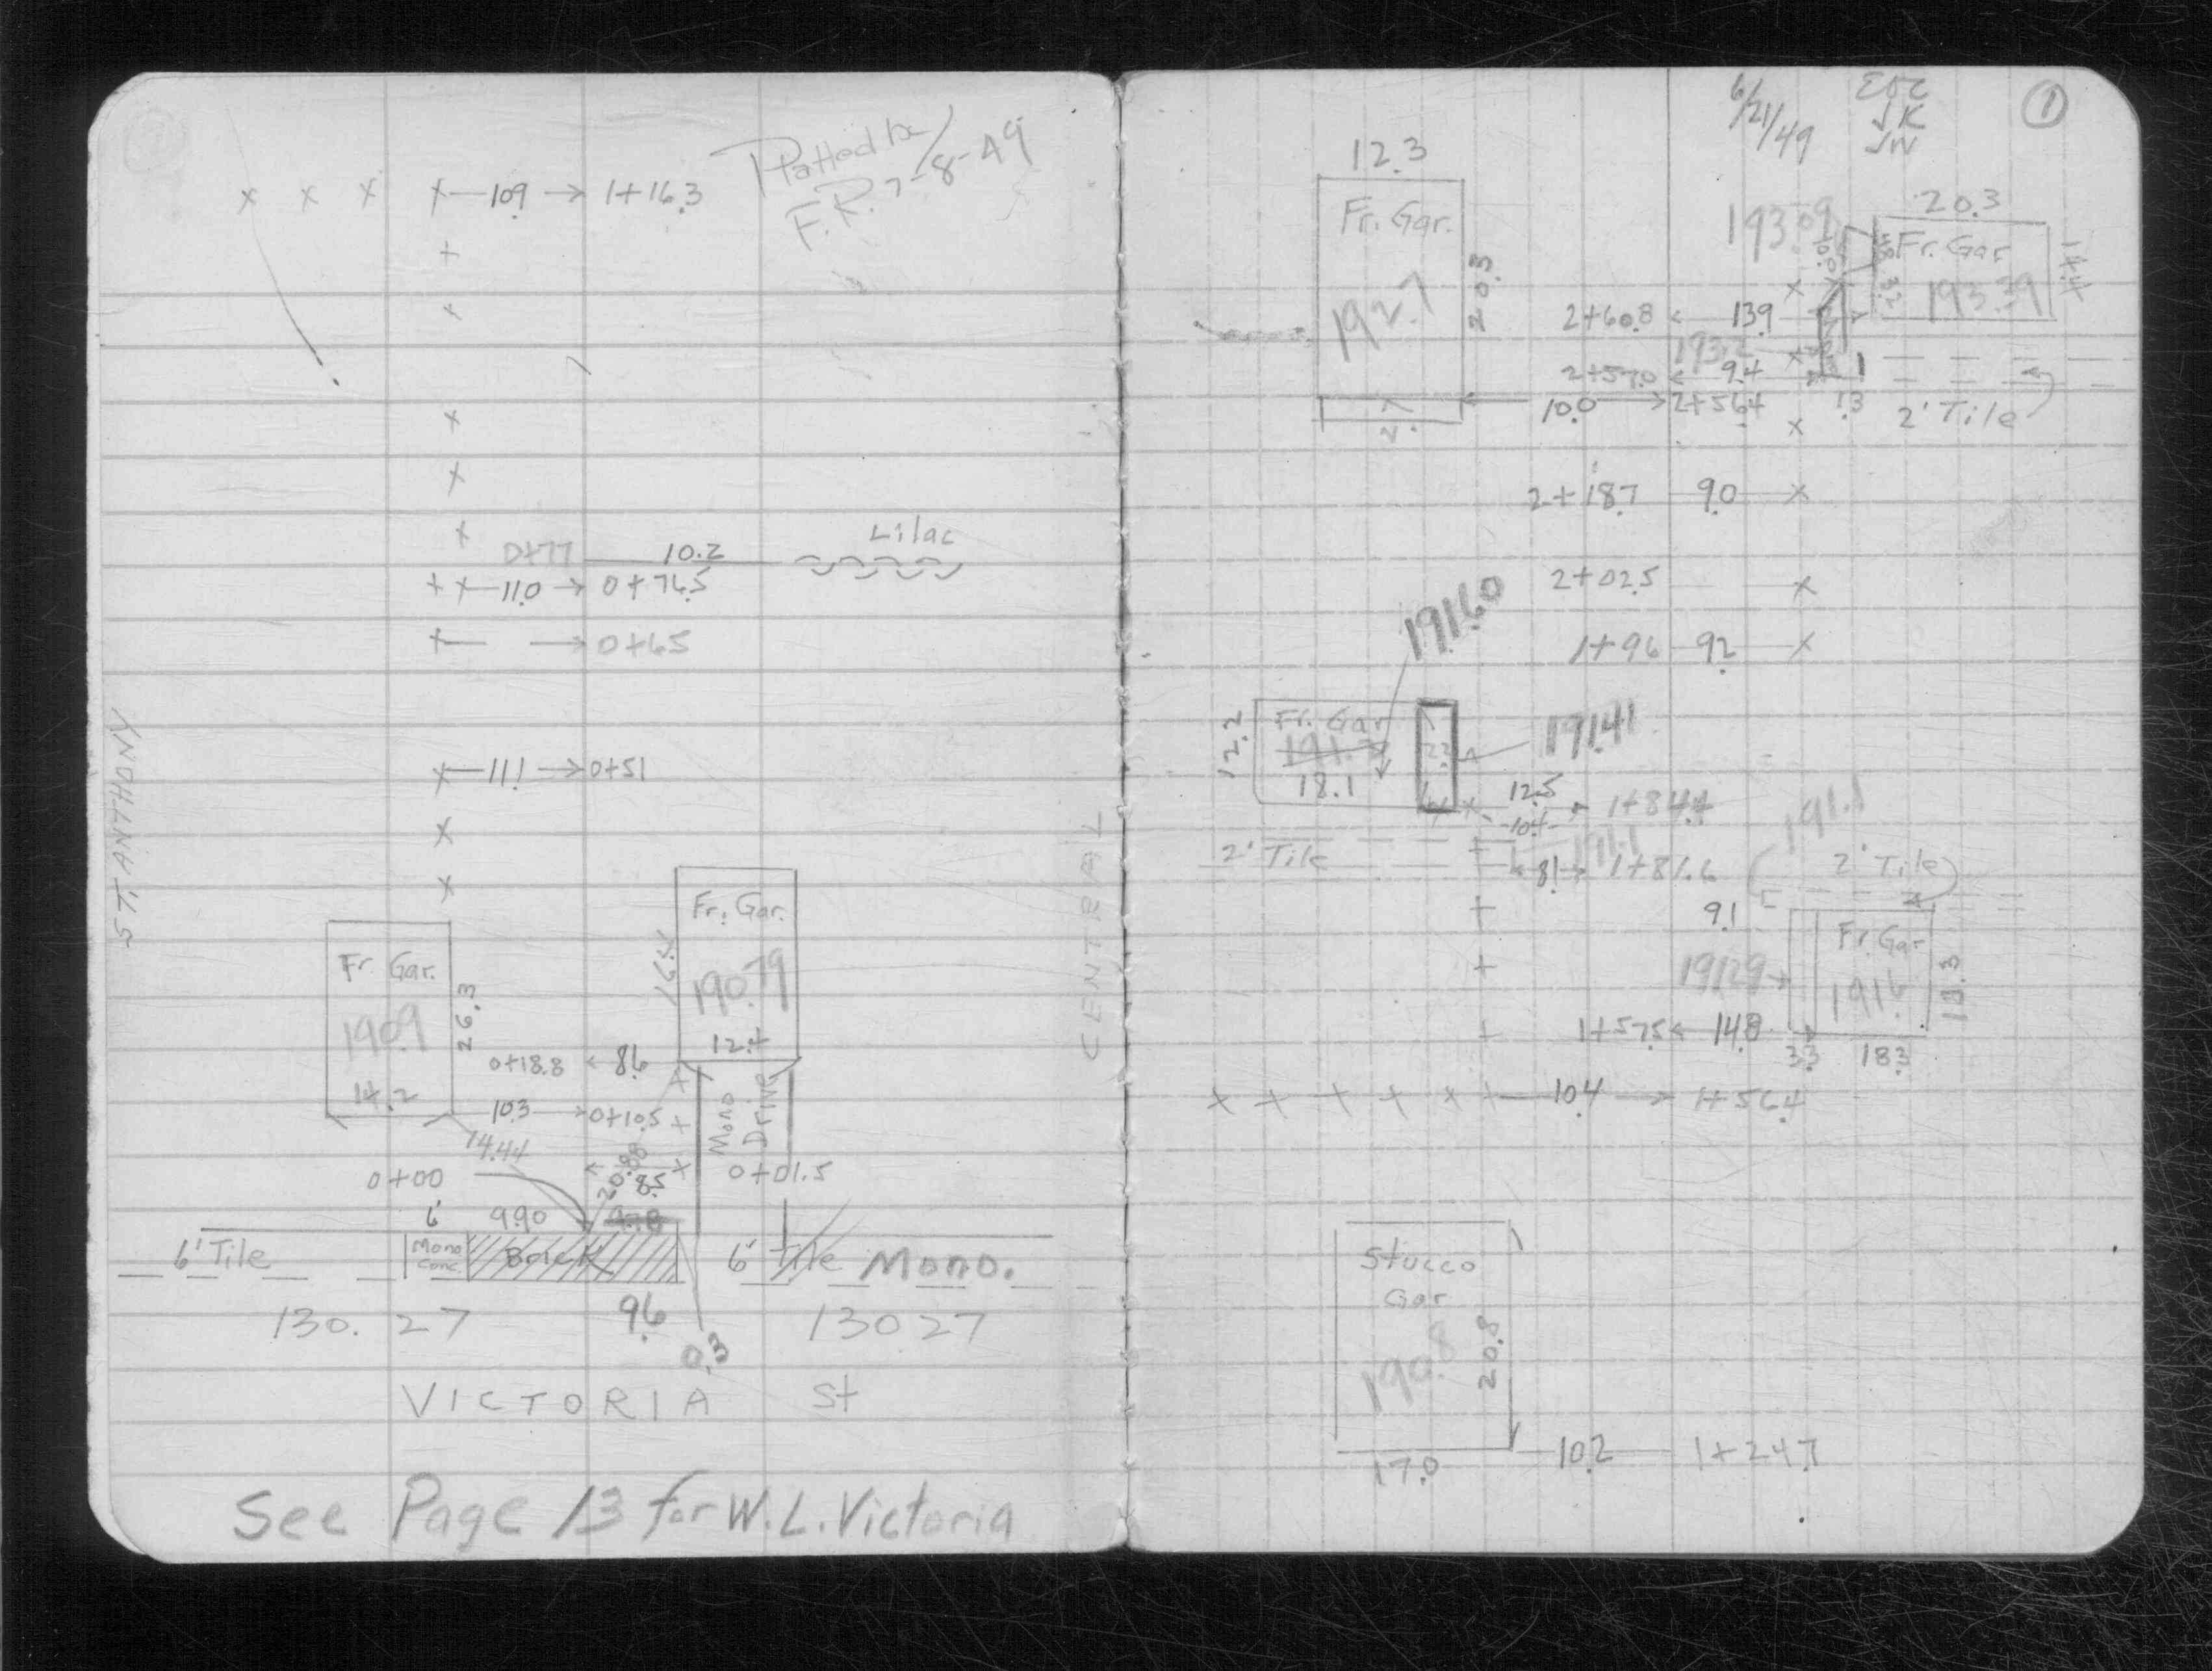 Platted by
F.R. 7-8-49
x x x x—10.9 → 1+16.3
Lilac
0+77 10.2
+ x—11.0 → 0+76.5
x— → 0+65
x—11.1 → 0+51
ST. ANTHONY
CENTRAL
Fr. Gar.
190.79
16.4
12.4
Fr. Gar.
190.9
26.3
14.2
0+18.8 ← 8.6
10.3 → 0+10.5
Mono
Drive
14.44
20.88
0+00
8.5
0+01.5
6' 9.90
6' Tile
Mono
Conc.
Brick
6' Tile Mono.
130.27
9.6
130 27
0.3
VICTORIA St
See Page 13 for W.L. Victoria
6/21/49
EOC
JK
JW
1
12.3
Fr. Gar.
192.7
20.3
2.7
20.3
193.09
Fr. Gar
193.39
14.1
2+60.8 ← 13.9
193.2
2+57.0 ← 9.4
10.0 → 2+56.4
1.3
2' Tile
2+18.7 9.0 x
2+02.5 x
191.60
1+96 9.2 x
Fr. Gar
12.2
18.1
191.41
12.5
10.4
1+84.4
191.1
2' Tile
191.1
8.1 → 1+81.6
2' Tile
9.1
Fr. Gar
191.29
191.6
13.3
1+57.5 ← 14.8
3.3 18.3
x x x x x x—10.4 → 1+56.4
Stucco
Gar
190.8
20.8
17.0
10.2 1+24.7